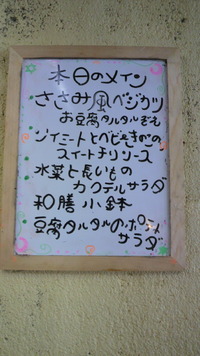 本日のメイン
ささみ風ベジカツ
お豆腐タルタルざえ
ソイミートとベビきのこの
スイートチリソース
水菜と長いもの
カクテルサラダ
和膳小鉢
豆腐タルタルのポテト
サラダ